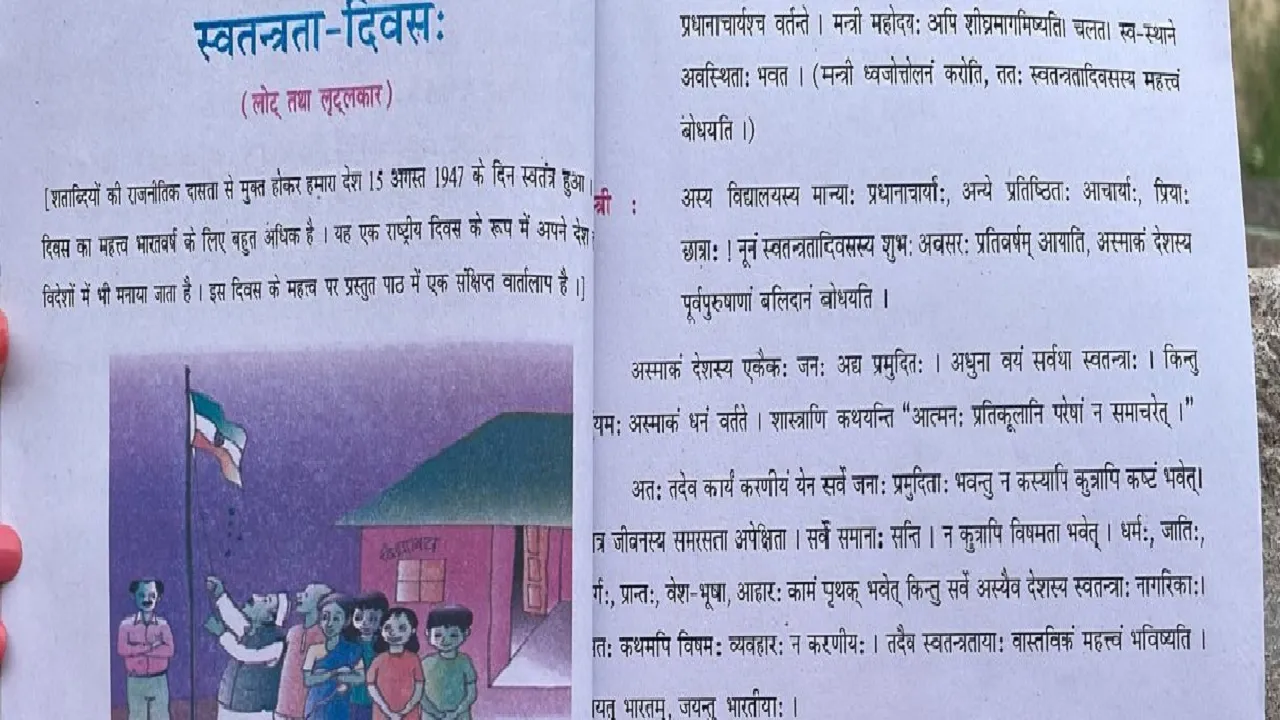 स्वतन्त्रता-दिवसः
(लोट् तथा लृट्लकार)
[शताब्दियों की राजनीतिक दासता से मुक्त होकर हमारा देश 15 अगस्त 1947 के दिन स्वतंत्र हुआ।
दिवस का महत्त्व भारतवर्ष के लिए बहुत अधिक है। यह एक राष्ट्रीय दिवस के रूप में अपने देश
विदेशों में भी मनाया जाता है। इस दिवस के महत्व पर प्रस्तुत पाठ में एक संक्षिप्त वार्तालाप है।]
प्रधानाचार्यश्च वर्तन्ते। मन्त्री महोदयः अपि शीघ्रमागमिष्यति। चलत। स्व-स्थाने
अवस्थिताः भवत। (मन्त्री ध्वजोत्तोलनं करोति, ततः स्वतन्त्रतादिवसस्य महत्त्वं
बोधयति।)
त्री : अस्य विद्यालयस्य मान्याः प्रधानाचार्याः, अन्ये प्रतिष्ठिताः आचार्याः, प्रियाः
छात्राः! नूनं स्वतन्त्रतादिवसस्य शुभः अवसरः प्रतिवर्षम् आयाति, अस्माकं देशस्य
पूर्वपुरुषाणां बलिदानं बोधयति।
अस्माकं देशस्य एकैकः जनः अद्य प्रमुदितः। अधुना वयं सर्वथा स्वतन्त्राः। किन्तु
यमः अस्माकं धनं वर्तते। शास्त्राणि कथयन्ति “आत्मनः प्रतिकूलानि परेषां न समाचरेत्।”
अतः तदेव कार्यं करणीयं येन सर्वे जनाः प्रमुदिताः भवन्तु न कस्यापि कुत्रापि कष्टं भवेत्।
त्र जीवनस्य समरसता अपेक्षिता। सर्वे समानाः सन्ति। न कुत्रापि विषमता भवेत्। धर्मः, जातिः,
र्गः, प्रान्तः, वेश-भूषा, आहारः कामं पृथक् भवेत् किन्तु सर्वे अस्यैव देशस्य स्वतन्त्राः नागरिकाः।
तः कथमपि विषमः व्यवहारः न करणीयः। तदैव स्वतन्त्रतायाः वास्तविकं महत्त्वं भविष्यति।
यतु भारतम्, जयन्तु भारतीयाः।